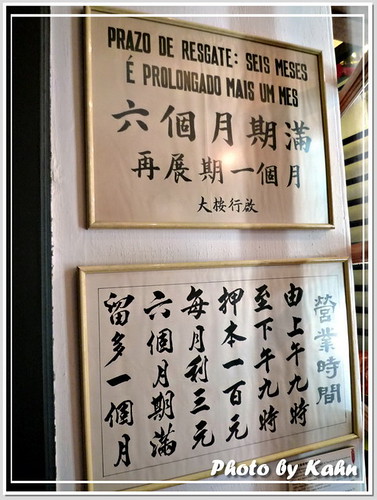 PRAZO DE RESGATE: SEIS MESES
É PROLONGADO MAIS UM MES
六個月期滿
再展期一個月
大按行啟
營業時間
由上午九時
至下午九時
押本一百元
每月利三元
六個月期滿
留多一個月
Photo by Kahn